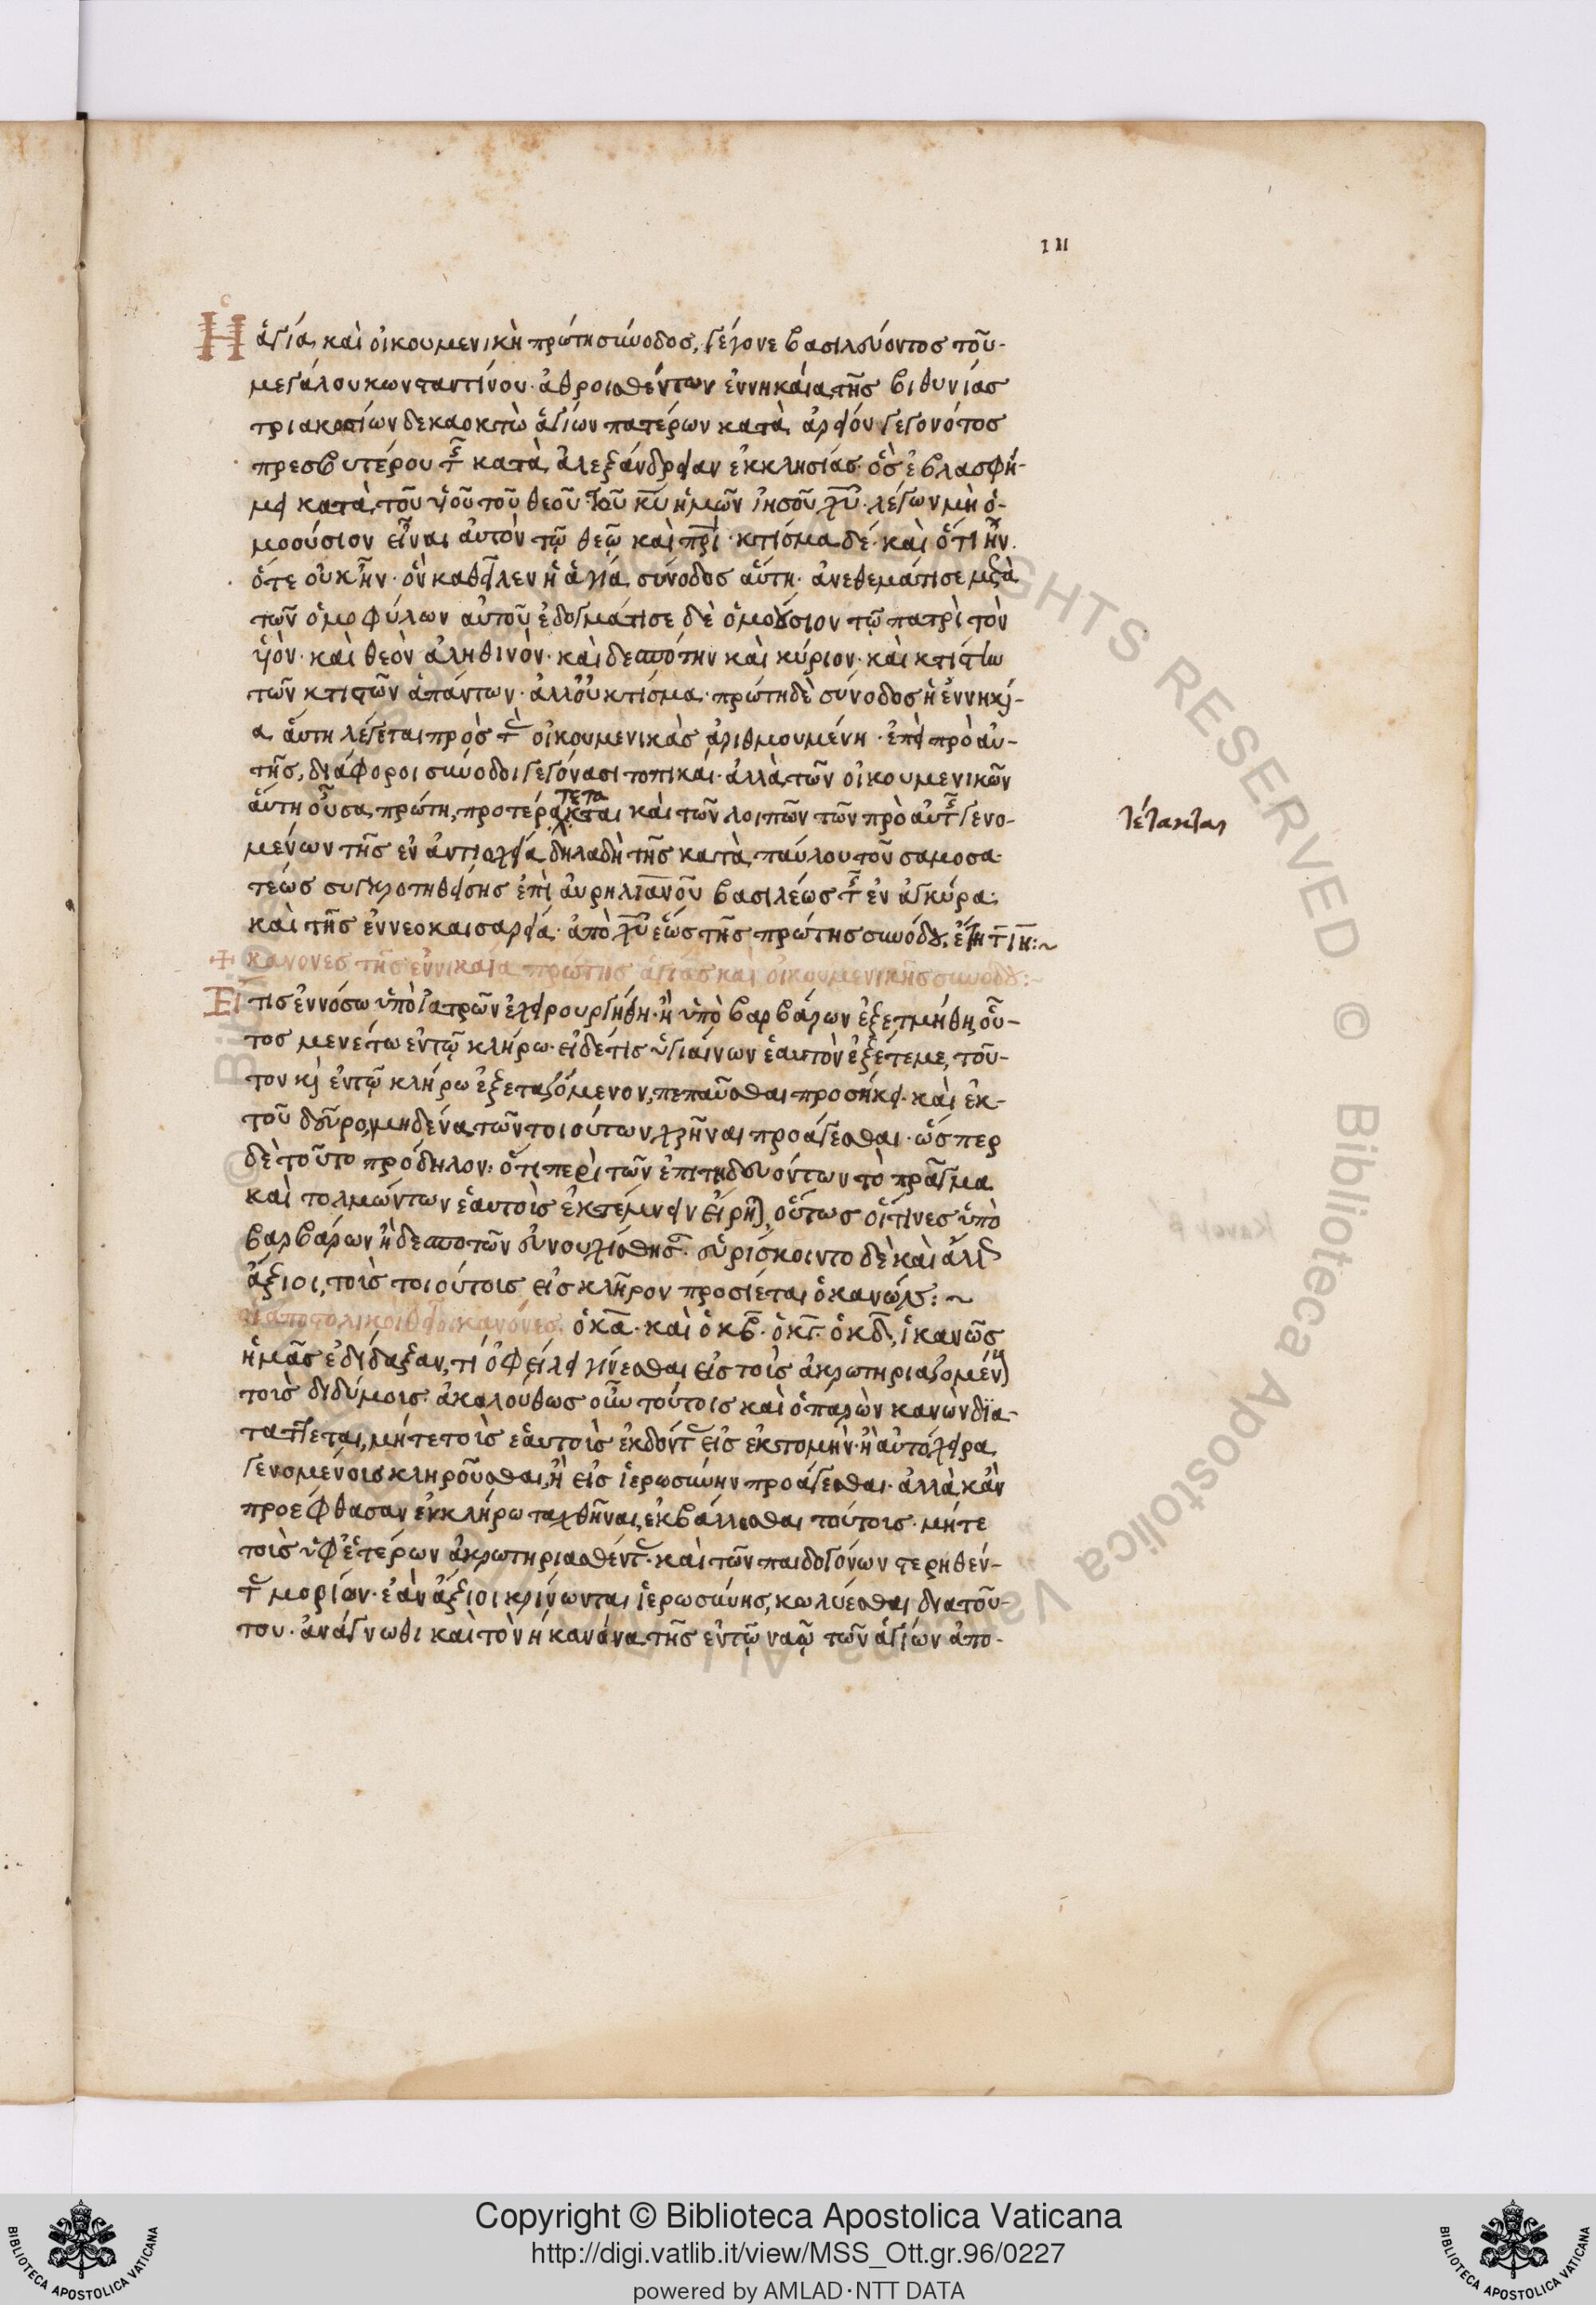 111
Ἡ ἁγία καὶ οἰκουμενικὴ πρώτη σύνοδος, γέγονε βασιλεύοντος τοῦ
μεγάλου κωνσταντίνου· ἀθροισθέντων ἐν νηκάια τῆς βιθυνίας
τριακοσίων δεκαοκτὼ ἁγίων πατέρων κατὰ ἀρείου γεγονότος
πρεσβυτέρου τῆς κατὰ ἀλεξάνδρειαν ἐκκλησίας· ὃς ἐβλασφή-
μει κατὰ τοῦ υἱοῦ τοῦ θεοῦ τοῦ κυ ἡμῶν ἰησοῦ χυ· λέγων μὴ ὁ-
μοούσιον εἶναι αὐτὸν τῷ θεῷ καὶ πρι· κτίσμα δέ· καὶ ὅτι ἦν
ὅτε οὐκ ἦν· ὃν καθεῖλεν ἡ ἁγία σύνοδος αὕτη· ἀνεθεμάτισε μετὰ
τῶν ὁμοφύλων αὐτοῦ ἐδογμάτισε δὲ ὁμοούσιον τῷ πατρὶ τὸν
υἱὸν· καὶ θεὸν ἀληθινὸν· καὶ δεσπότην καὶ κύριον· καὶ κτίστην
τῶν κτιστῶν ἁπάντων· ἀλλ' οὐ κτίσμα· πρώτη δὲ σύνοδος ἡ ἐν νηκαί-
α αὕτη λέγεται πρὸς τὰς οἰκουμενικὰς ἀριθμουμένη· ἐπεὶ πρὸ αὐ-
τῆς, διάφοροι σύνοδοι γεγόνασι τοπικαί· ἀλλὰ τῶν οἰκουμενικῶν
αὕτη οὖσα πρώτη, προτέρα τέτακται καὶ τῶν λοιπῶν τῶν πρὸ αὐτῆς γενο-
τέτακται
μένων τῆς ἐν ἀντιοχεία δηλαδὴ τῆς κατὰ παύλου τοῦ σαμοσα-
τέως συγκροτηθείσης ἐπὶ αὐρηλιανοῦ βασιλέως τῆς ἐν ἀγκύρα·
καὶ τῆς ἐν νεοκαισαρεία· ἀπὸ χυ ἕως τῆς πρώτης συνόδου, ἔτη τιη:~
+ κανονες τῆς ἐν νικαια πρώτης ἁγίας καὶ οἰκουμενικῆς συνόδου:~
Εἴ τις ἐν νόσω ὑπὸ ἰατρῶν ἐχειρουργήθη· ἢ ὑπὸ βαρβάρων ἐξετμήθη, οὗ-
τος μενέτω ἐν τῷ κλήρω· εἰ δέ τις ὑγιαίνων ἑαυτὸν ἐξέτεμε, τοῦ-
τον καὶ ἐν τῷ κλήρω ἐξεταζόμενον, πεπαῦσθαι προσήκει· καὶ ἐκ-
τοῦ δεῦρο, μηδένα τῶν τοιούτων χρῆναι προάγεσθαι· ὥσπερ
δὲ τοῦτο πρόδηλον· ὅτι περὶ τῶν ἐπιτηδευόντων τὸ πρᾶγμα
καὶ τολμώντων ἑαυτοὶς ἐκτέμνειν εἴρηται, οὕτως οἵτινες ὑπὸ
βαρβάρων ἢ δεσποτῶν εὐνουχίσθησαν· εὑρίσκοιντο δὲ καὶ ἄλλως
ἄξιοι, τοὶς τοιούτοις εἰς κλῆρον προσίεται ὁ κανών:~
οἱ ἀποστολικοὶ θεῖοι κανόνες ὁ κα· καὶ ὁ κβ· ὁ κγ· ὁ κδ, ἱκανῶς
ἡμᾶς ἐδίδαξαν, τί ὀφείλει γίνεσθαι εἰς τοὶς ἀκρωτηριαζομένοις
τοὶς διδύμοις· ἀκολούθως οὖν τούτοις καὶ ὁ παρὼν κανὼν δϊα-
τάττεται, μήτε τοὶς ἑαυτοὶς ἐκδόντας εἰς ἐκτομὴν· ἢ αὐτόχειρα
γενομένοις κληροῦσθαι, ἢ εἰς ἱερωσύνην προάγεσθαι· ἀλλὰ κἂν
προέφθασαν ἐν κλήρω ταχθῆναι, ἐκβάλλεσθαι τούτοις· μήτε
τοὶς ὑφ' ἑτέρων ἀκρωτηριασθέντας· καὶ τῶν παιδογόνων στερηθέν-
τας μορίων· ἐὰν ἄξιοι κρίνωνται ἱερωσύνης, κωλύεσθαι δια τοῦ-
του· ἀνάγνωθι καὶ τὸν η κανόνα τῆς ἐν τῷ ναῷ τῶν ἁγίων ἀπο-
κανον β
© Biblioteca Apostolica Vaticana ALL RIGHTS RESERVED
Copyright © Biblioteca Apostolica Vaticana
http://digi.vatlib.it/view/MSS_Ott.gr.96/0227
powered by AMLAD·NTT DATA
BIBLIOTECA APOSTOLICA VATICANA
BIBLIOTECA APOSTOLICA VATICANA